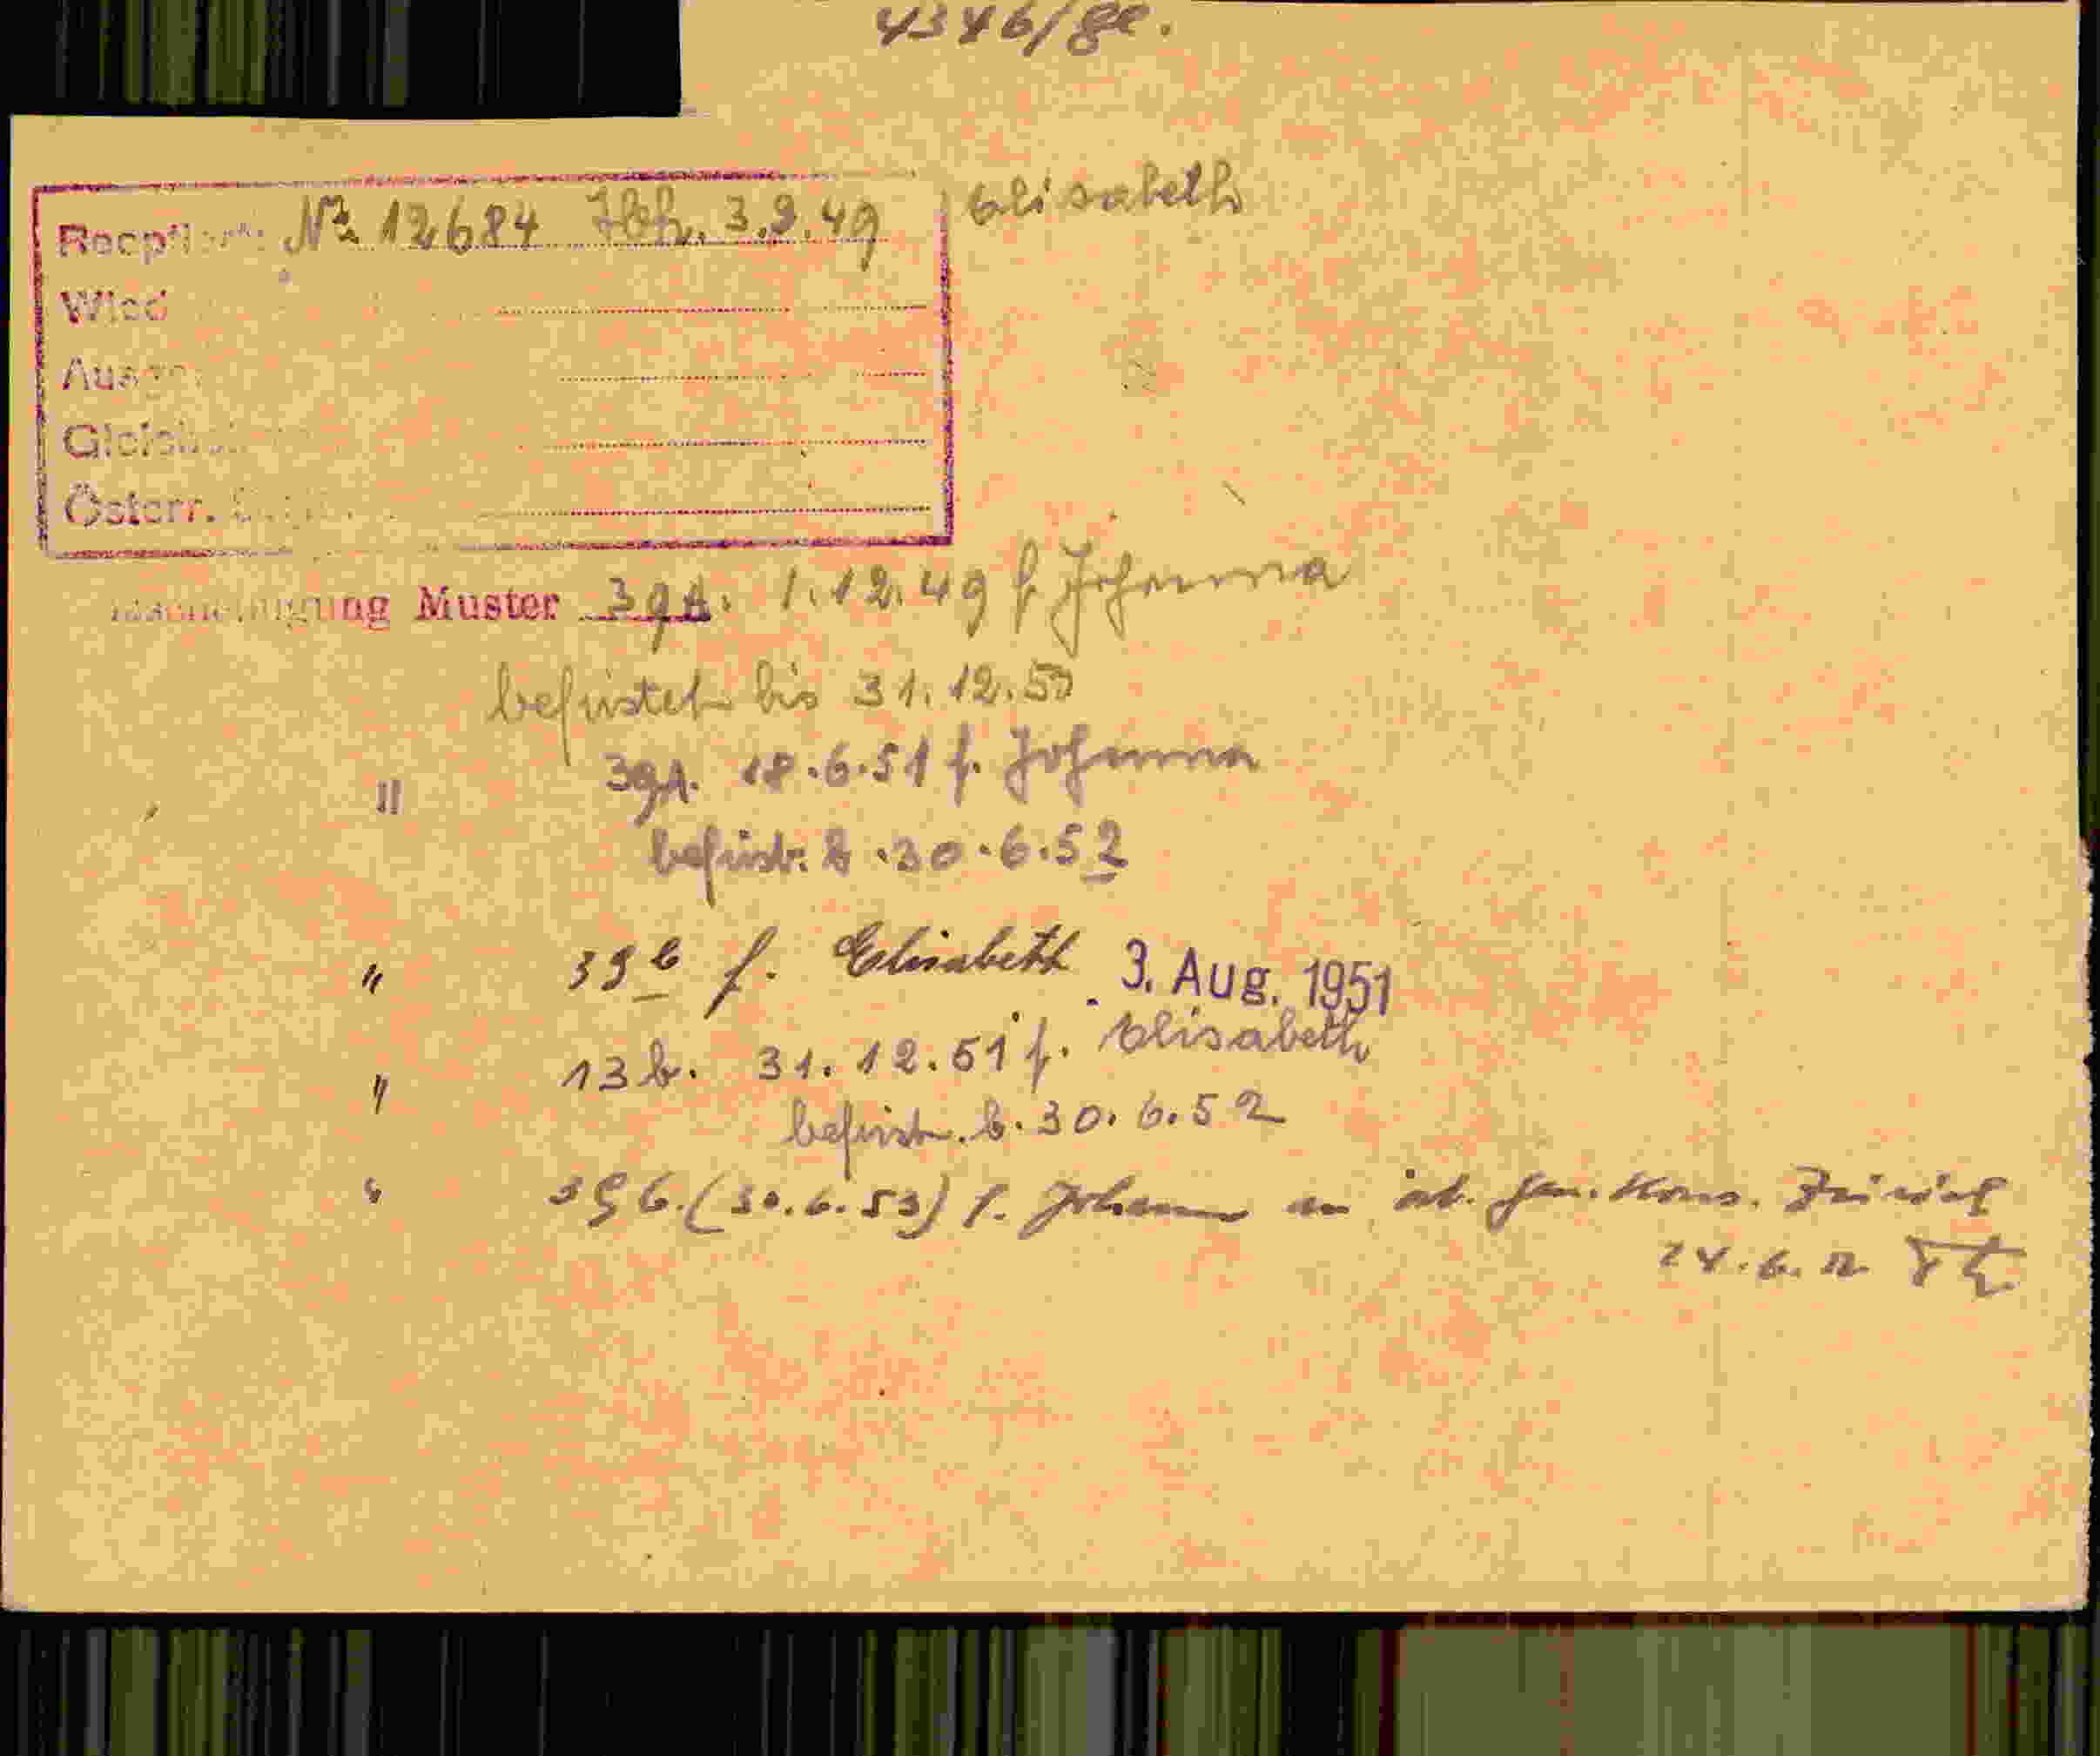 4346/ge.
Recpfl N° 12684 3.9.49 Elisabeth
Wied
Ausge
Gleich
Österr.
Bescheinigung Muster 39A. 1.12.49 f. Johanna
befristet bis 31.12.50
" 39A. 18.6.51 f. Johanna
befrist. b. 30.6.52
" 39b f. Elisabeth 3. Aug. 1951
" 13b. 31.12.51 f. Elisabeth
befrist. b. 30.6.52
" 39b. (30.6.53) f. Johanna an öst. Gen. Kons. Zürich
24.6.52